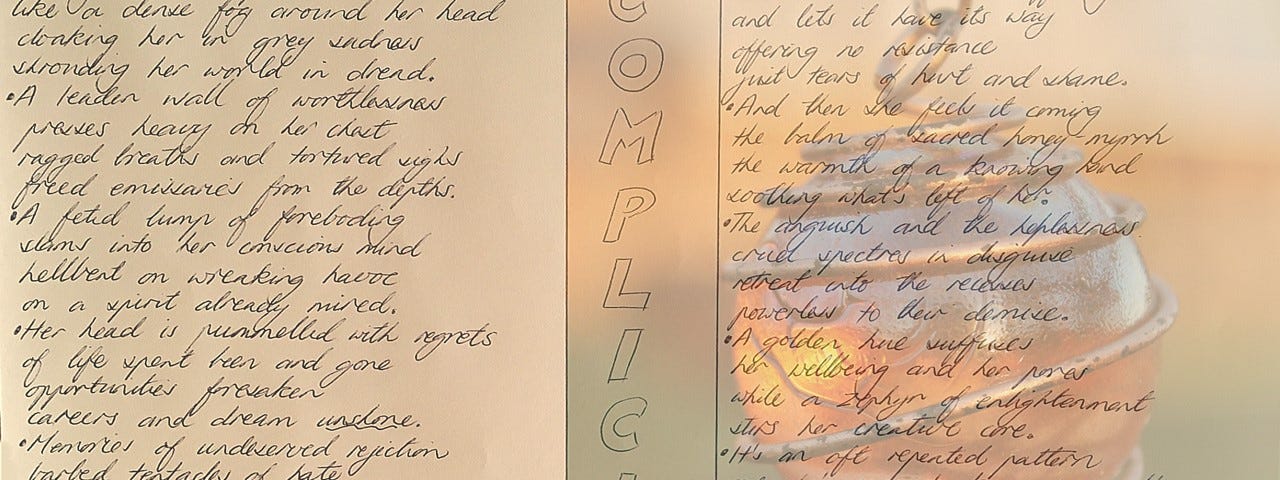 like a dense fog around her head
cloaking her in grey sadness
shrouding her world in dread.
•A leaden wall of worthlessness
presses heavy on her chest
ragged breaths and tortured sighs
freed emissaries from the depths.
•A fetid lump of foreboding
slams into her conscious mind
hellbent on wreaking havoc
on a spirit already mired.
•Her head is pummelled with regrets
of life spent been and gone
opportunities forsaken
careers and dream unshone.
•Memories of undeserved rejection
barbed tentacles of hate
C
O
M
P
L
I
C
I
and lets it have its way
offering no resistance
just tears of hurt and shame.
•And then she feels it coming
the balm of sacred honey-myrrh
the warmth of a knowing hand
soothing what's left of her.
•The anguish and the helplessness
cruel spectres in disguise
retreat into the recesses
powerless to their demise.
•A golden hue suffuses
her wellbeing and her pores
while a zephyr of enlightenment
stirs her creative core.
•It's an oft repeated pattern